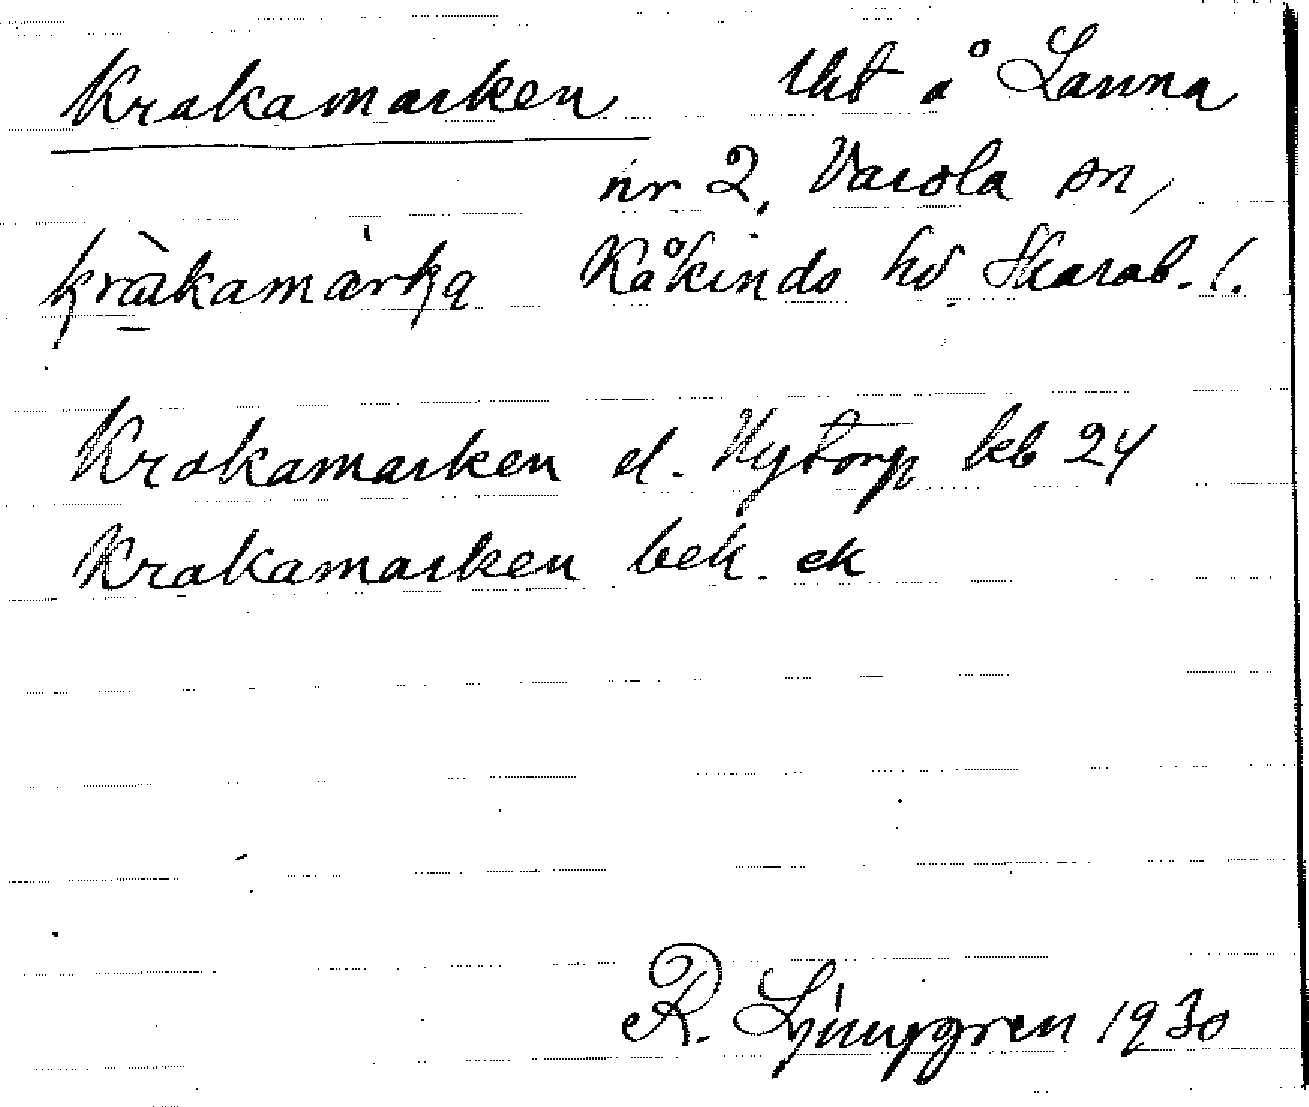 Krakamarken Uht å Launa
nr 2, Varola sn,
kràkamàrka Kåkinds hd Skarab. l.
Krakamarken el. Nytorp kb 24
Krakamarken bek. ek
R. Ljunggren 1930